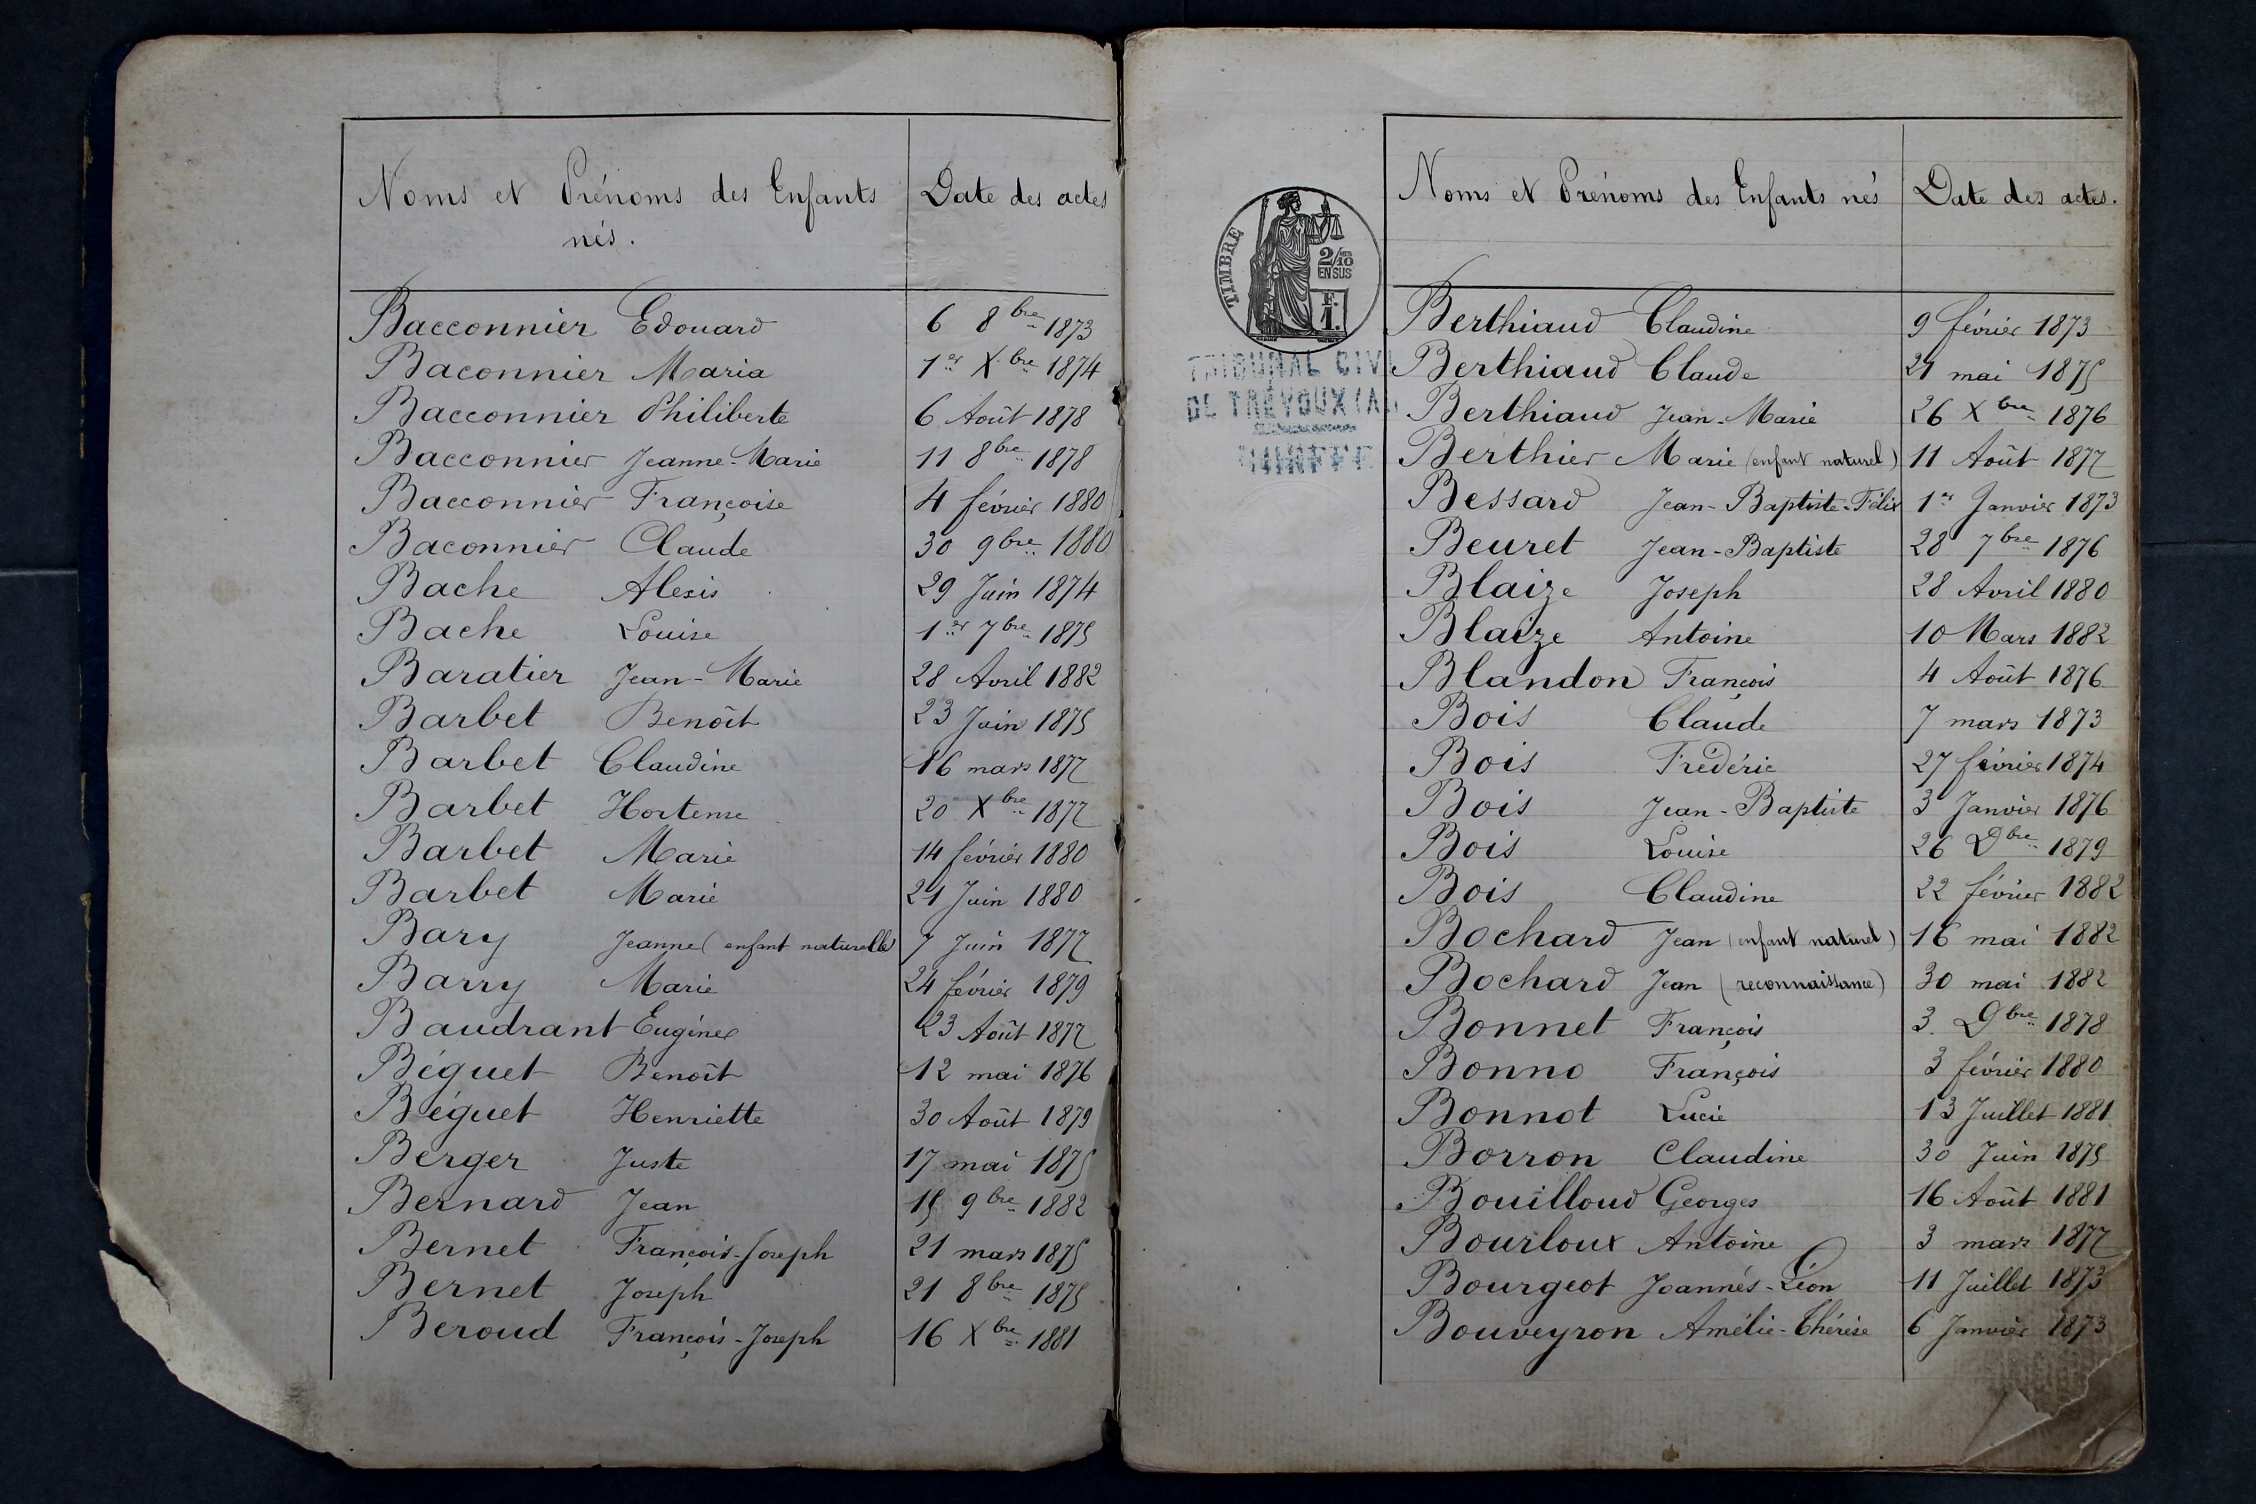 Noms et Prénoms des Enfants nés. Date des actes
Bacconnier Edouard 6 8bre 1873
Baconnier Maria 1er Xbre 1874
Bacconnier Philiberte 6 Août 1878
Bacconnier Jeanne-Marie 11 8bre 1878
Bacconnier Françoise 4 février 1880
Baconnier Claude 30 9bre 1880
Bache Alexis 29 Juin 1874
Bache Louise 1er 7bre 1875
Baratier Jean-Marie 28 Avril 1882
Barbet Benoît 23 Juin 1875
Barbet Claudine 16 mars 1877
Barbet Hortense 20 Xbre 1877
Barbet Marie 14 février 1880
Barbet Marie 21 Juin 1880
Bary Jeanne (enfant naturelle) 7 Juin 1877
Barry Marie 24 février 1879
Baudrant Eugène 23 Août 1877
Béguet Benoît 12 mai 1876
Béguet Henriette 30 Août 1879
Berger Juste 17 mai 1875
Bernard Jean 15 9bre 1882
Bernet François-Joseph 21 mars 1875
Bernet Joseph 21 8bre 1875
Beroud François-Joseph 16 Xbre 1881
TIMBRE
2/10 EN SUS
F. 1.
TRIBUNAL CIVIL
DE TRÉVOUX (A
Noms et Prénoms des Enfants nés Date des actes.
Berthiaud Claudine 9 février 1873
Berthiaud Claude 21 mai 1875
Berthiaud Jean-Marie 26 Xbre 1876
Berthier Marie (enfant naturel) 11 Août 1877
Bessard Jean-Baptiste-Félix 1er Janvier 1873
Beuret Jean-Baptiste 28 7bre 1876
Blaize Joseph 28 Avril 1880
Blaize Antoine 10 Mars 1882
Blandon François 4 Août 1876
Bois Claude 7 mars 1873
Bois Frédéric 27 février 1874
Bois Jean-Baptiste 3 Janvier 1876
Bois Louise 26 9bre 1879
Bois Claudine 22 février 1882
Bochard Jean (enfant naturel) 16 mai 1882
Bochard Jean (reconnaissance) 30 mai 1882
Bonnet François 3. 9bre 1878
Bonno François 3 février 1880
Bonnot Lucie 13 Juillet 1881
Borron Claudine 30 Juin 1875
Bouilloud Georges 16 Août 1881
Bourloux Antoine 3 mars 1877
Bourgeot Joannés-Léon 11 Juillet 1873
Bouveyron Amélie-Thérèse 6 Janvier 1873